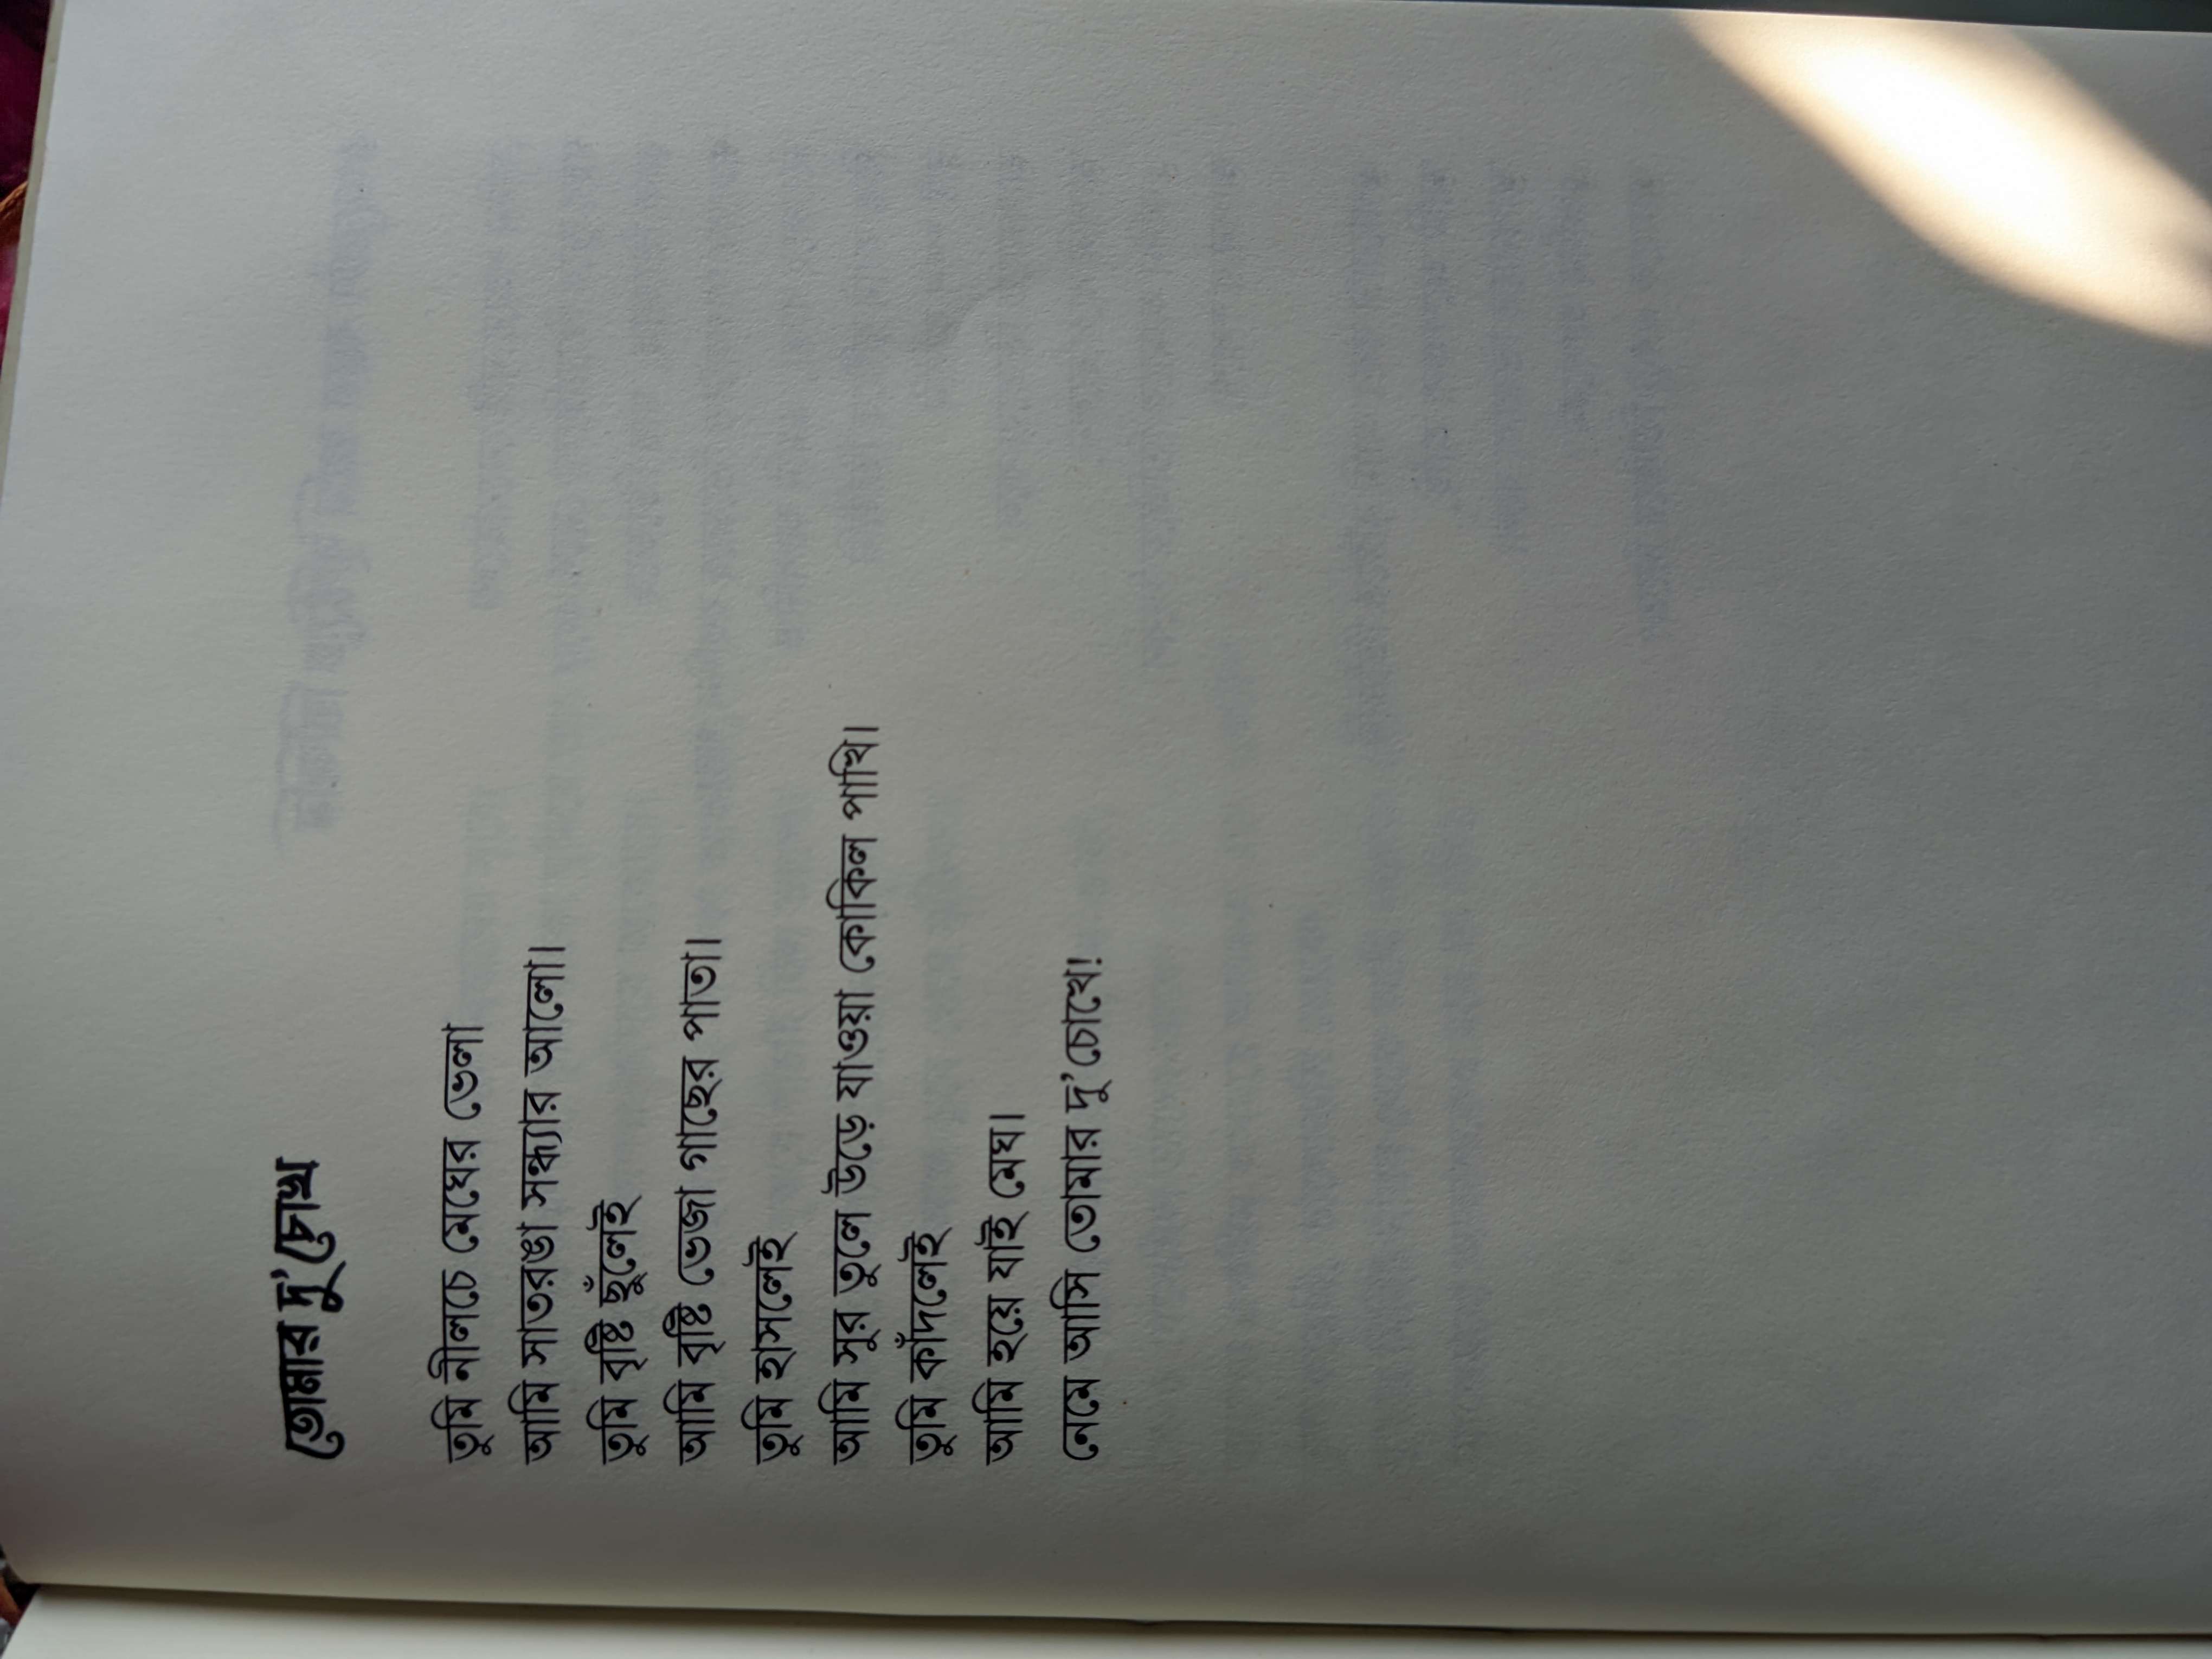 তোমার দু'চোখ
তুমি নীলচে মেঘের ভেলা
আমি সাতরঙা সন্ধ্যার আলো।
তুমি বৃষ্টি ছুঁলেই
আমি বৃষ্টি ভেজা গাছের পাতা।
তুমি হাসলেই
আমি সুর তুলে উড়ে যাওয়া কোকিল পাখি।
তুমি কাঁদলেই
আমি হয়ে যাই মেঘ।
নেমে আসি তোমার দু'চোখে!